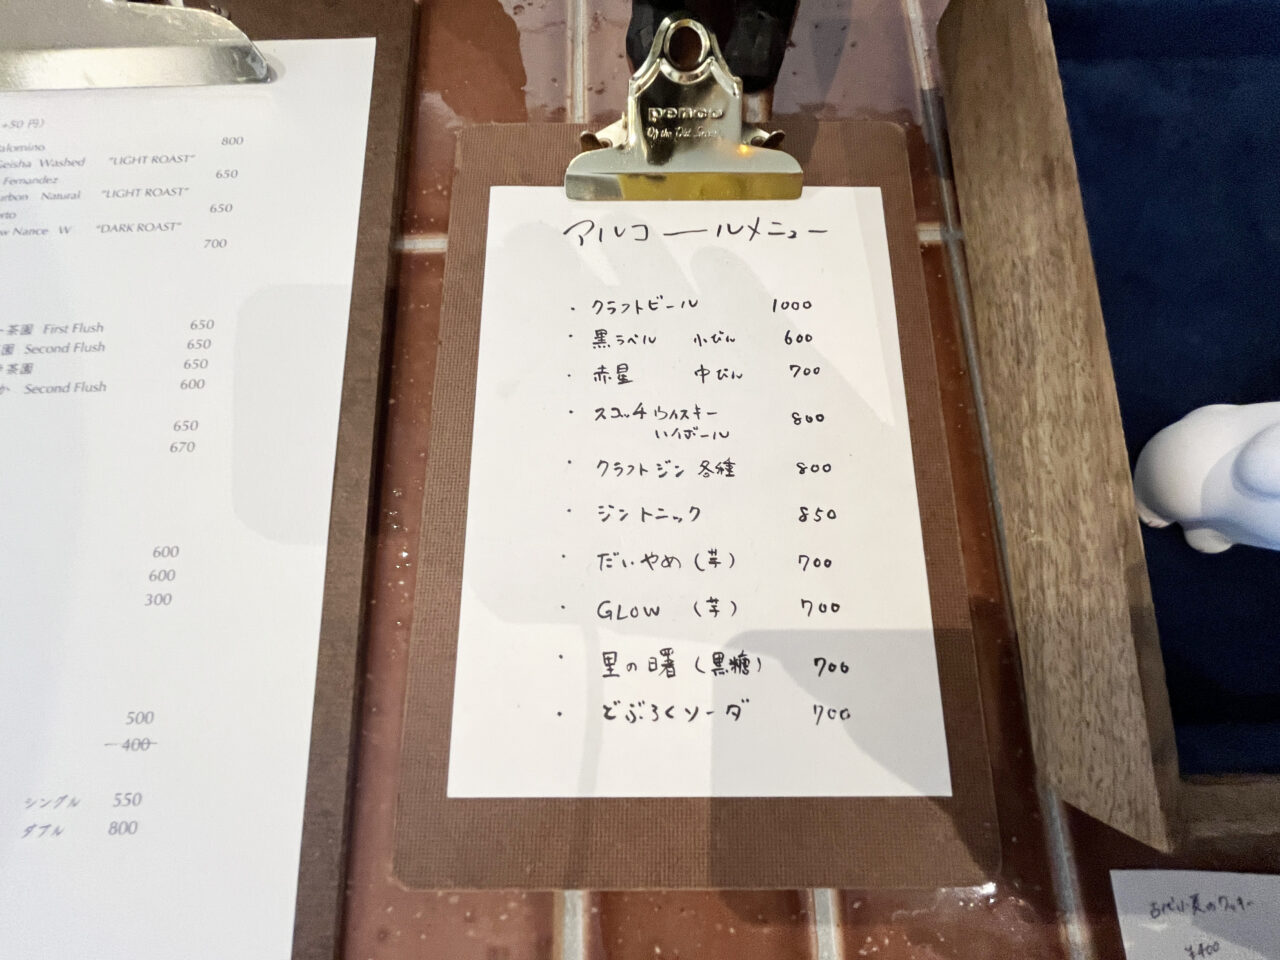 +50 円)
800
Geisha Washed "LIGHT ROAST"
650
Fernandez
Natural "LIGHT ROAST"
650
Nance W "DARK ROAST"
700
茶園 First Flush 650
園 Second Flush 650
茶園 650
Second Flush 600
650
670
600
600
300
500
400
シングル 550
ダブル 800
penco
アルコールメニュー
・クラフトビール 1000
・黒ラベル 小びん 600
・赤星 中びん 700
・スコッチウイスキー
ハイボール 800
・クラフトジン 各種 800
・ジントニック 850
・だいやめ (芋) 700
・GLOW (芋) 700
・里の曙 (黒糖) 700
・どぶろくソーダ 700
¥400